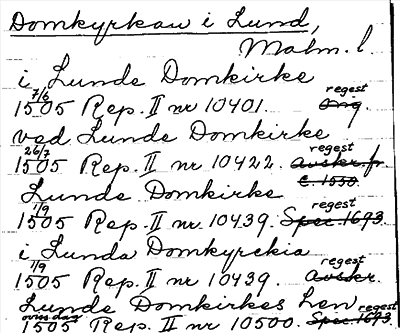 Domkyrkan i Lund,
Malm. l.
i Lunde Domkirke
7/6 regest
1505 Rep. II nr 10401. Orig.
ved Lunde Domkirke
26/7 regest
1505 Rep. II nr 10422. Avskr. fr.
c. 1550.
Lunde Domkirke
1/9 regest
1505 Rep. II nr 10439. Spec. 1693
i Lunda Domkyrckia
1/9 regest
1505 Rep. II nr 10439. Avskr.
Lunde Domkirkes hen
regest
1505 Rep. II nr 10500. Spec. 1693.